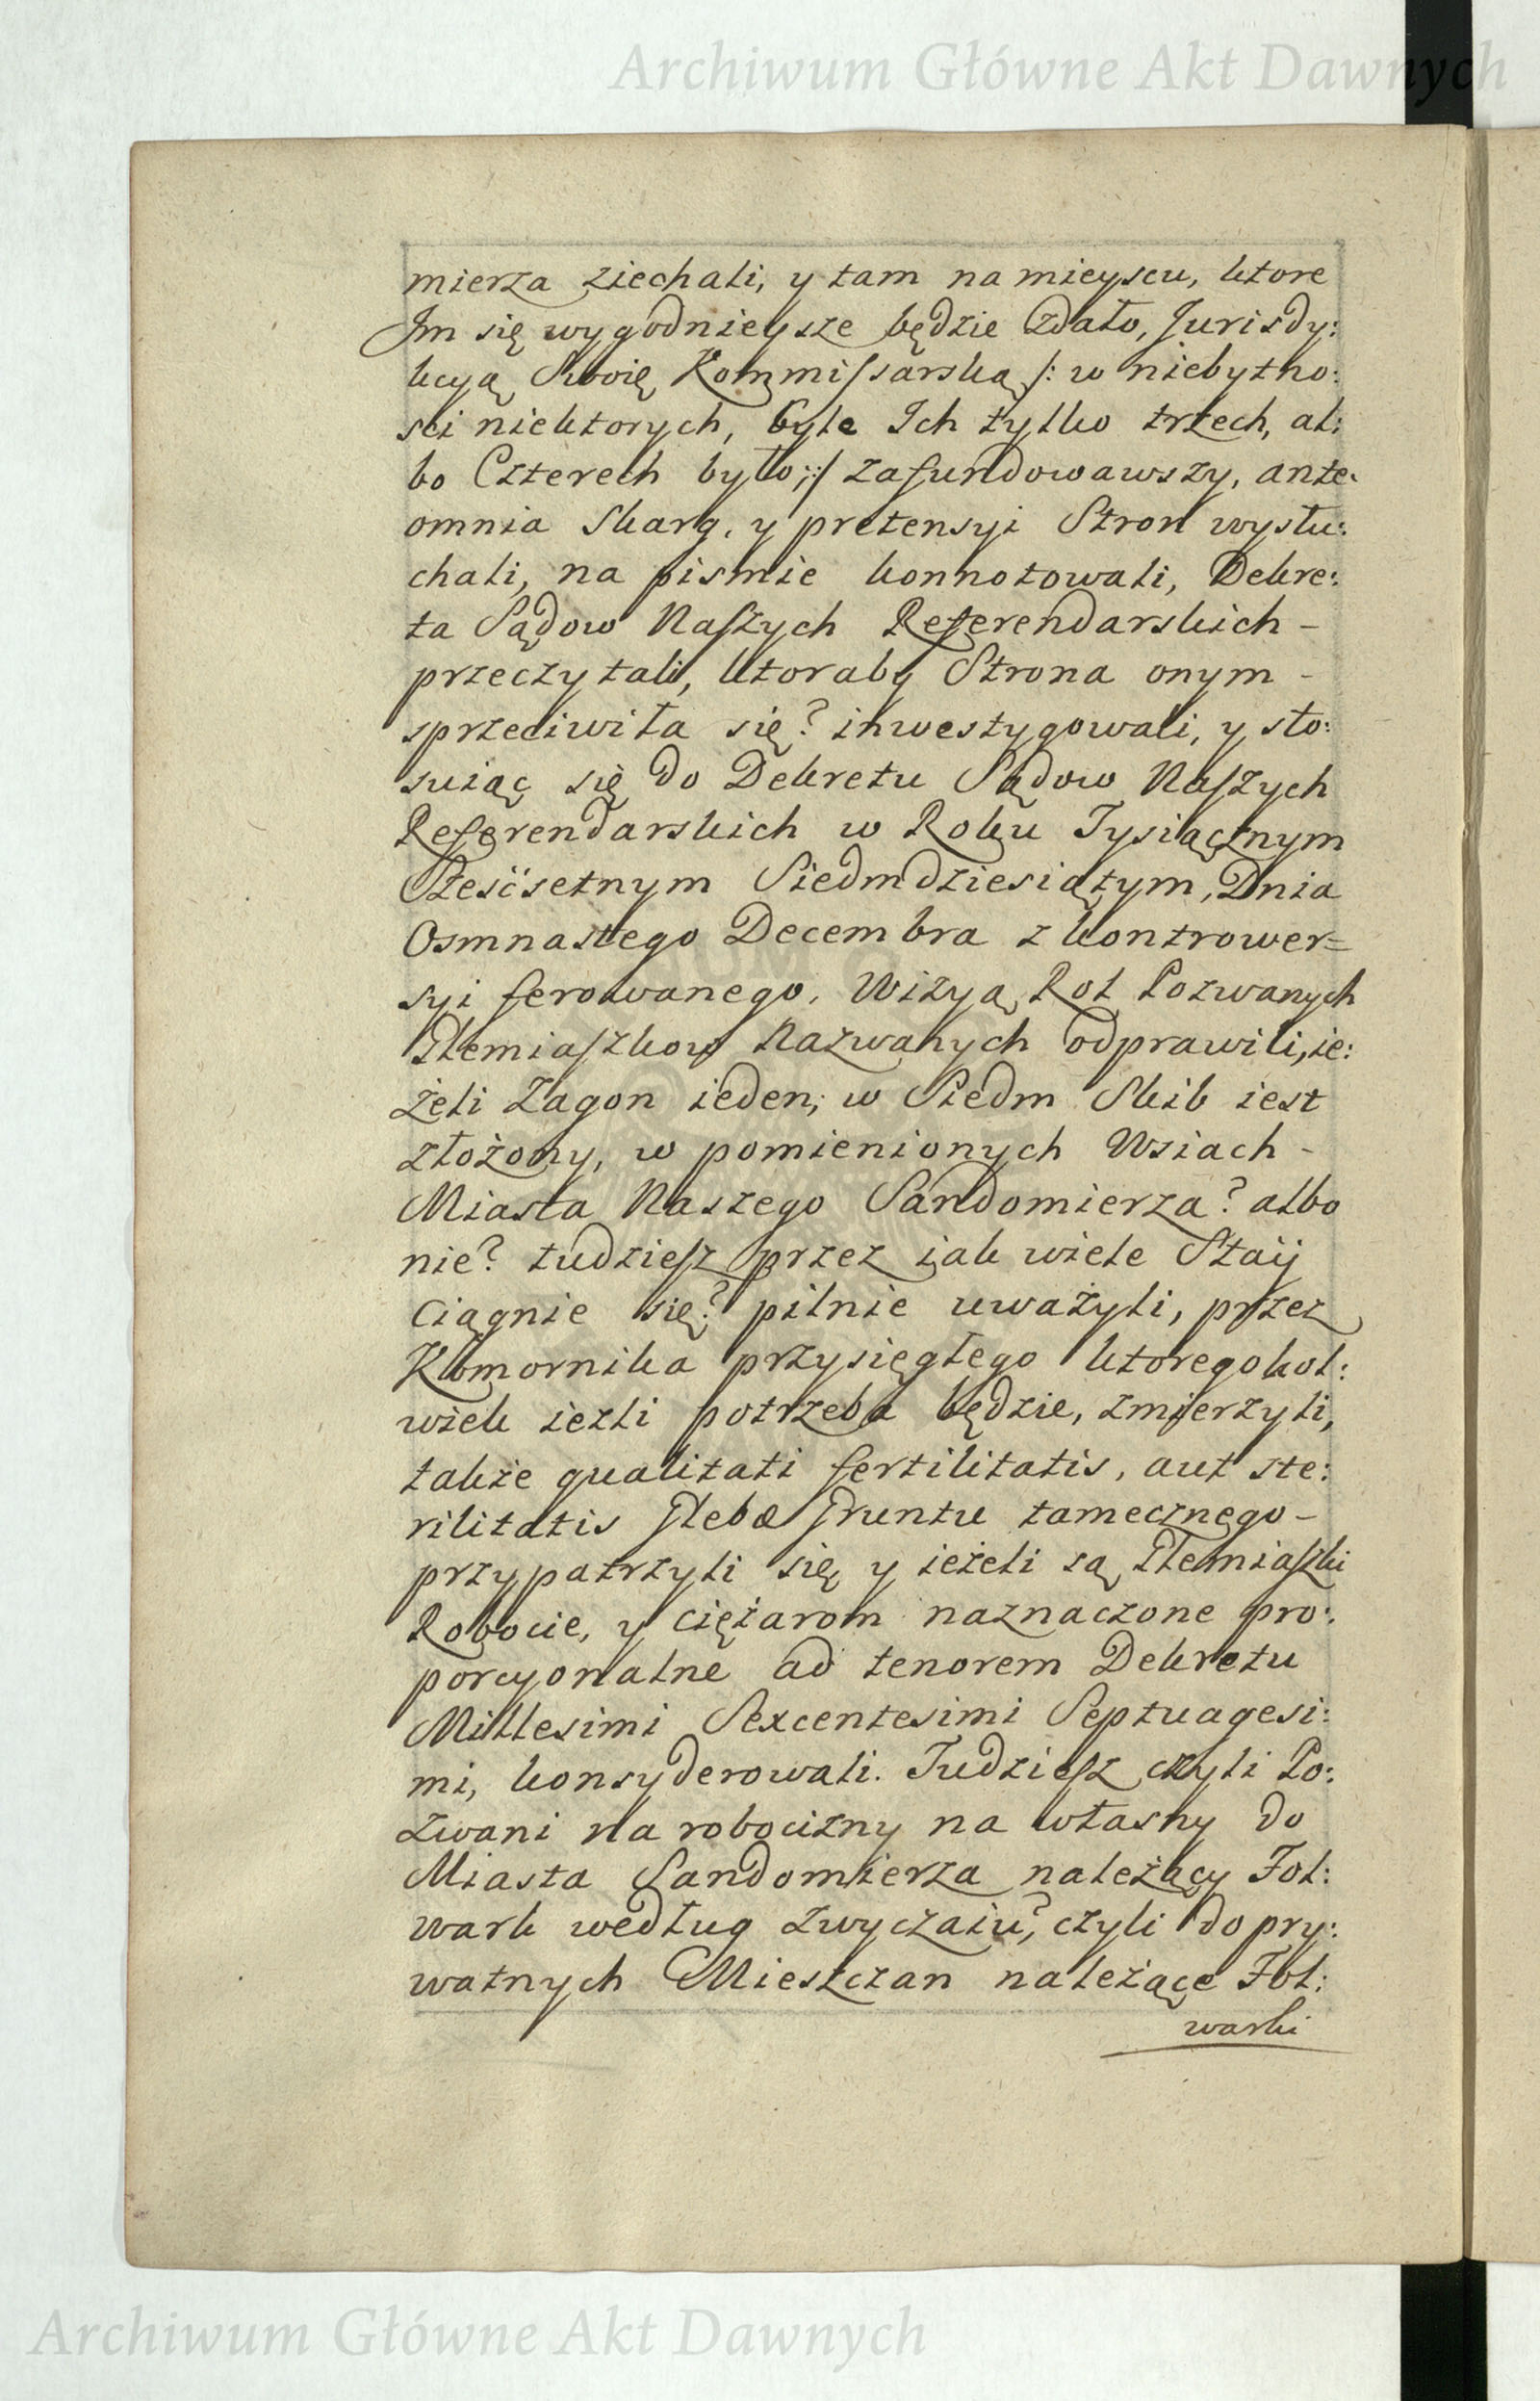 Archiwum Główne Akt Dawnych
mierza ziechali, y tam na mieyscu, ktore
Im się wygodnieysze będzie zdało, Jurisdy:
kcyą Swoię Kommiſsarską /: w niebytno:
sci niektorych, byle Ich tylko trzech, al:
bo Czterech było :/ zafundowawszy, ante
omnia Skarg, y pretensyi Stron wysłu:
chali, na pismie konnotowali, Dekre:
ta Sądow Naſzych Referendarskich -
przeczytali, ktoraby Strona onym -
sprzeciwiła się? inwestygowali, y sto:
suiąc się do Dekretu Sądow Naſzych
Referendarskich w Roku Tysiącznym
Szesćsetnym Siedmdziesiątym, Dnia
Osmnastego Decembra z kontrower=
syi ferowanego, Wizyą Rol Pozwanych
Płemiaſzkow Nazwanych odprawili, ie:
żeli Zagon ieden, w Siedm Skib iest
złożony, w pomienionych Wsiach -
Miasta Naszego Sandomierza? albo
nie? tudzieſz przez iak wiele Staii
Ciągnie się? pilnie uważyli, przez
Komornika przysięgłego ktoregokol:
wiek iezli potrzeba będzie, zmierzyli,
także qualitati fertilitatis, aut ste:
rilitatis Glebæ Gruntu tamecznego -
przypatrzyli się y ieżeli są Płemiaſzki
Robocie, y ciężarom naznaczone pro:
porcyonalne ad tenorem Dekretu
Millesimi Sexcentesimi Septuagesi:
mi, konsyderowali. Tudzieſz czyli Po:
zwani na robocizny na własny do
Miasta Sandomierza należący Fol:
wark według zwyczaiu? czyli do pry:
watnych Mieszczan należące Fol:
warki
Archiwum Główne Akt Dawnych